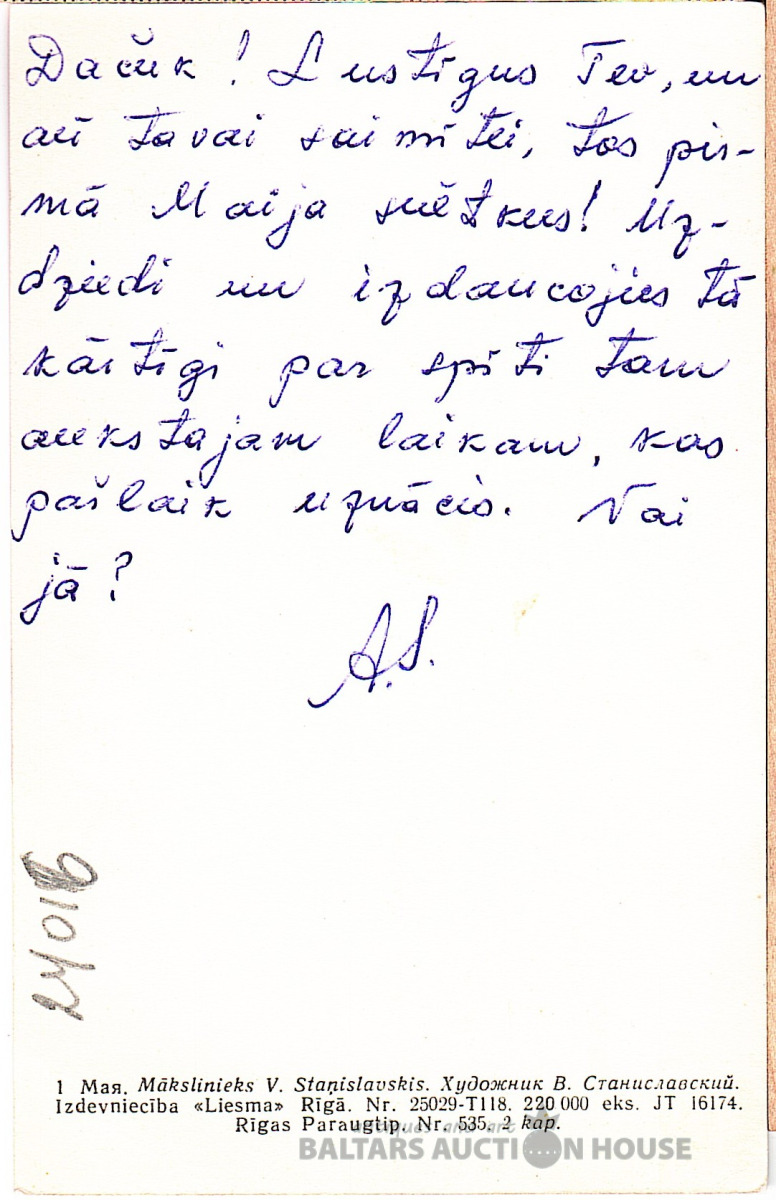 Dačuk! Lustīgus Tev, un
arī tavai saimītei, tos pir-
mā Maija svētkus! Uz-
dziedi un izdancojies tā
kārtīgi par spīti tam
aukstajam laikam, kas
pašlaik uznācis. Vai
jā?
A.S.
1 Мая. Mākslinieks V. Staņislavskis. Художник В. Станиславский.
Izdevniecība «Liesma» Rīgā. Nr. 25029-T118. 220 000 eks. JT 16174.
Rīgas Paraugtip. Nr. 535. 2 kap.
BALTARS AUCTION HOUSE